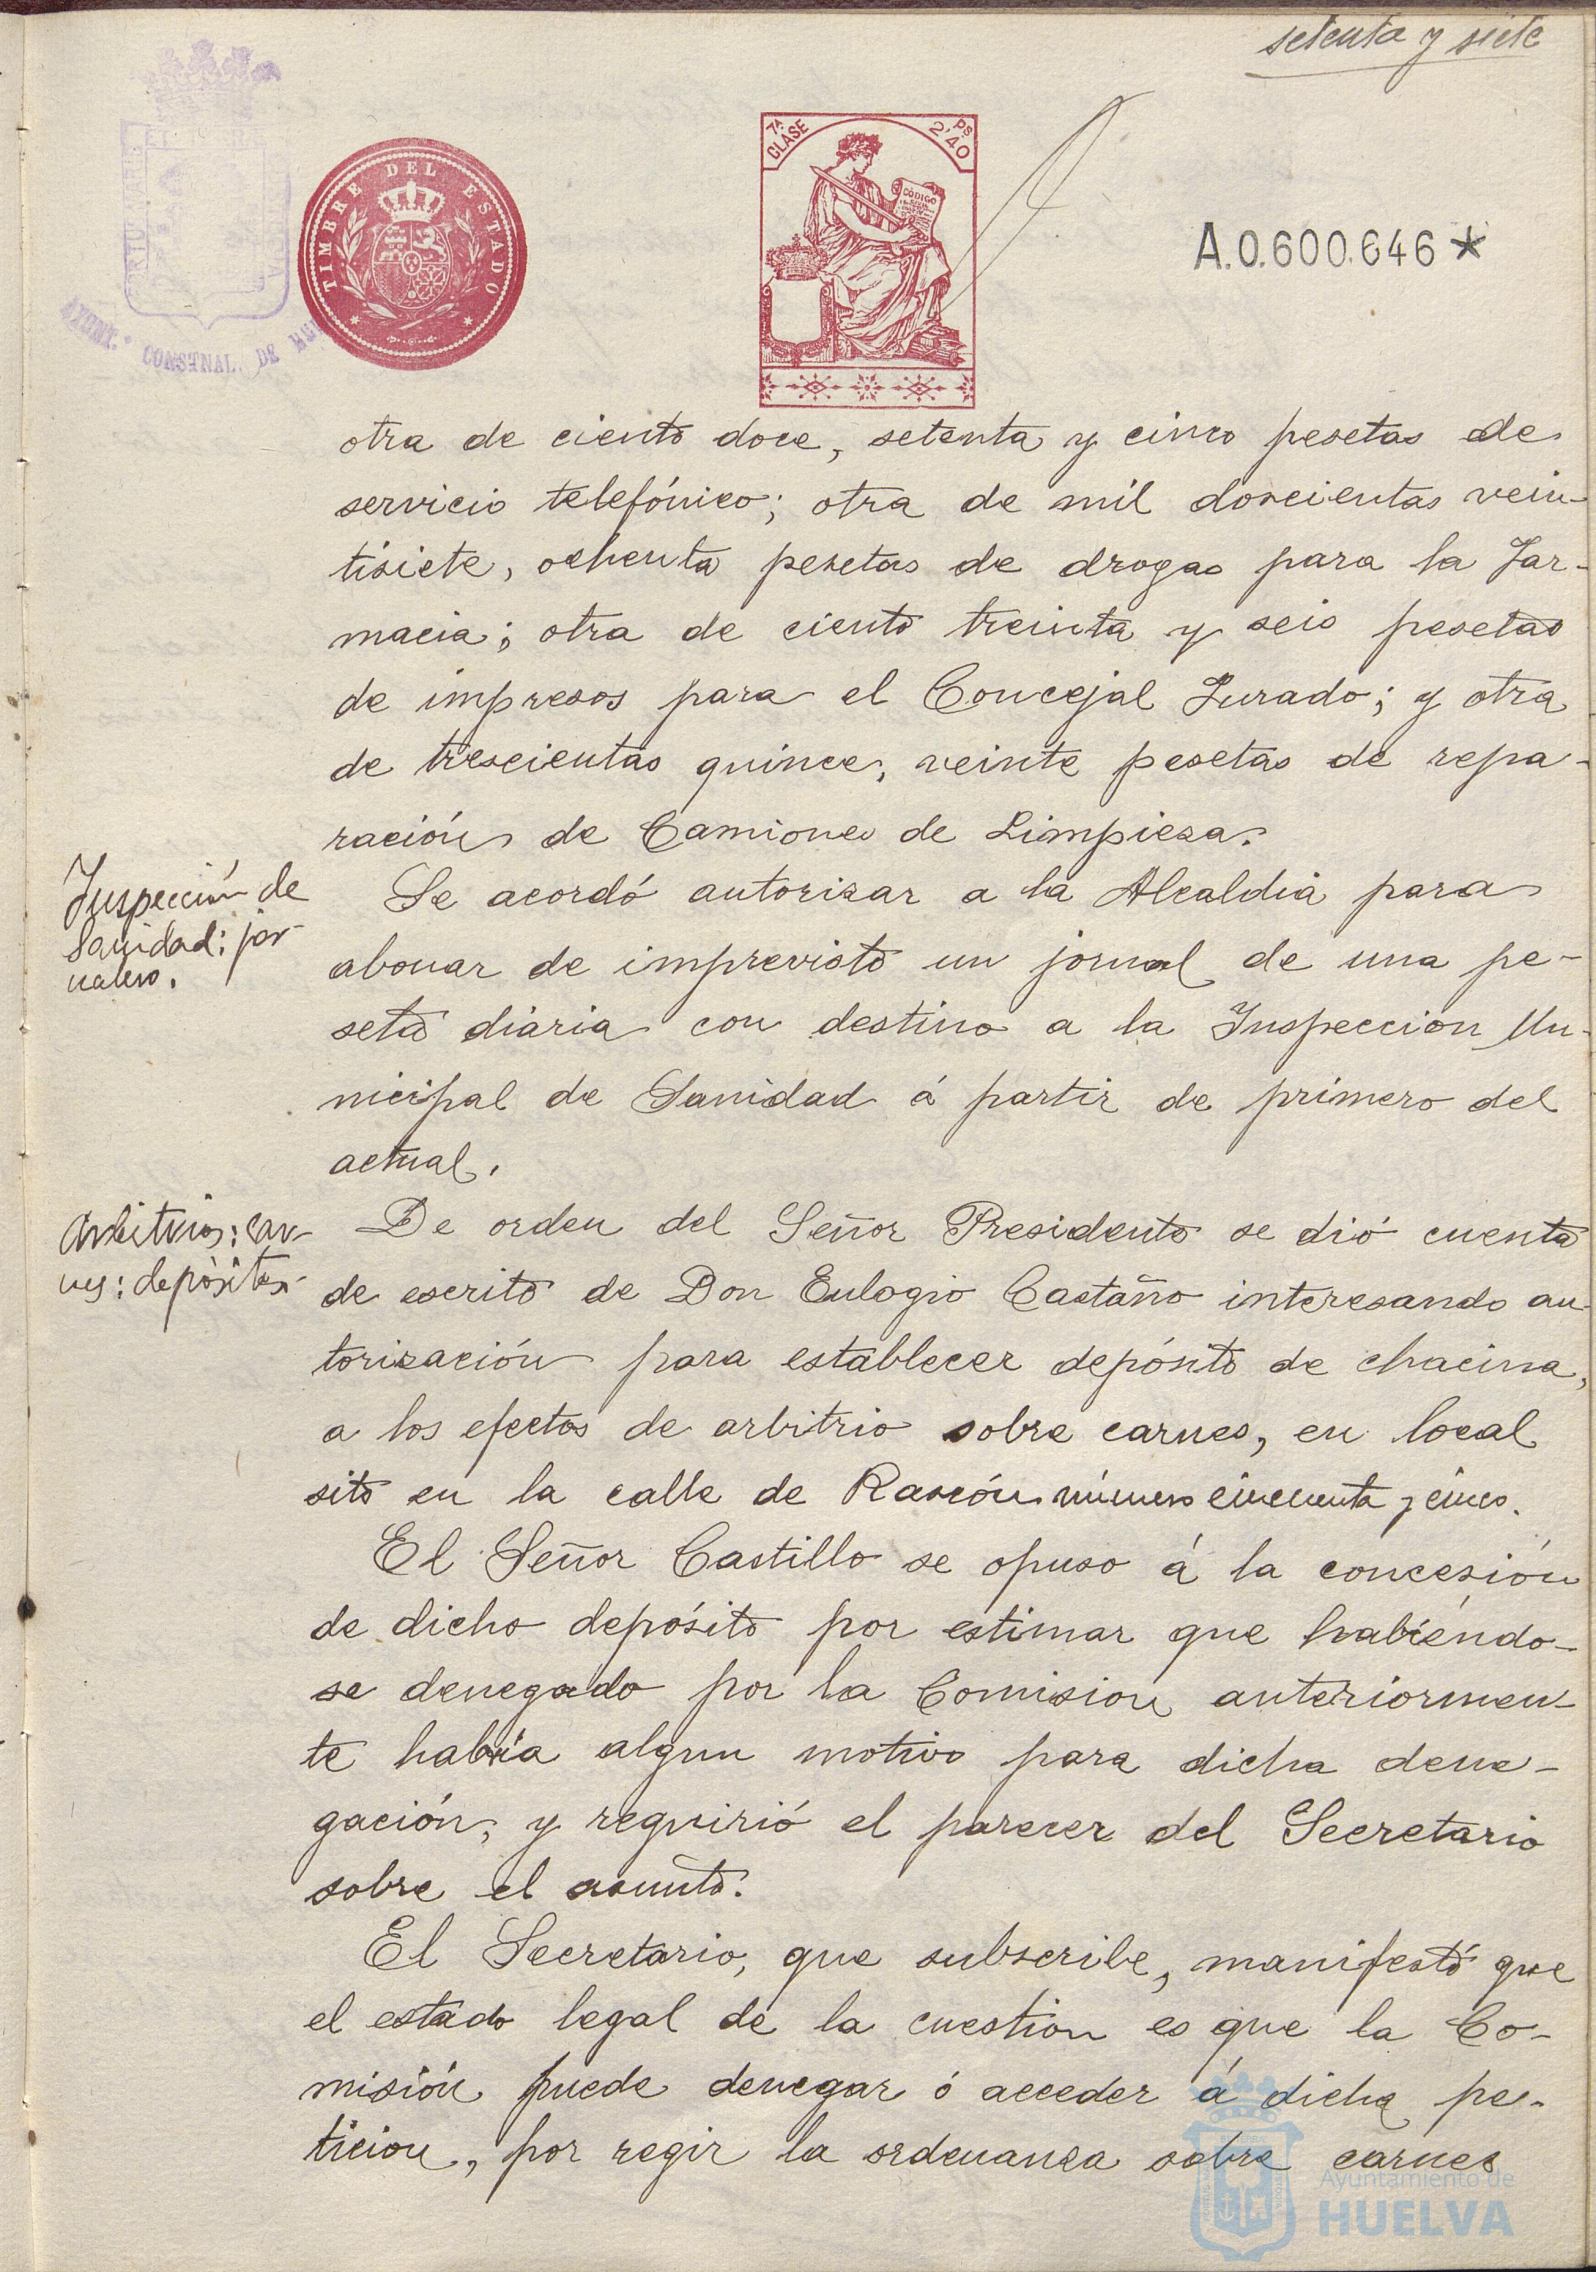 setenta y siete
TIMBRE DEL ESTADO
7ª CLASE
2'40 PS
CÓDIGO
A.0.600.646*
AYUNT. CONSTNAL. DE
otra de ciento doce, setenta y cinco pesetas de
servicio telefónico; otra de mil doscientas vein-
tisiete, ochenta pesetas de drogas para la Far-
macia; otra de ciento treinta y seis pesetas
de impresos para el Concejal Jurado; y otra
de trescientas quince, veinte pesetas de repa-
ración de Camiones de Limpieza.
Inspección de
Sanidad: jor-
nales.
Se acordó autorizar a la Alcaldia para
abonar de imprevisto un jornal de una pe-
seta diaria con destino a la Inspeccion Mu-
nicipal de Sanidad á partir de primero del
actual.
Arbitrios: car-
nes: depósitos
De orden del Señor Presidente se dió cuenta
de escrito de Don Eulogio Castaño interesando au-
torización para establecer depósito de chacina,
a los efectos de arbitrio sobre carnes, en local
sito en la calle de Rascón número cincuenta y cinco.
El Señor Castillo se opuso á la concesión
de dicho depósito por estimar que habiéndo-
se denegado por la Comision anteriormen-
te habría algun motivo para dicha dene-
gación, y requirió el parecer del Secretario
sobre el asunto.
El Secretario, que subscribe, manifestó que
el estado legal de la cuestion es que la Co-
misión puede denegar ó acceder á dicha pe-
ticion, por regir la ordenanza sobre carnes
Ayuntamiento de
HUELVA